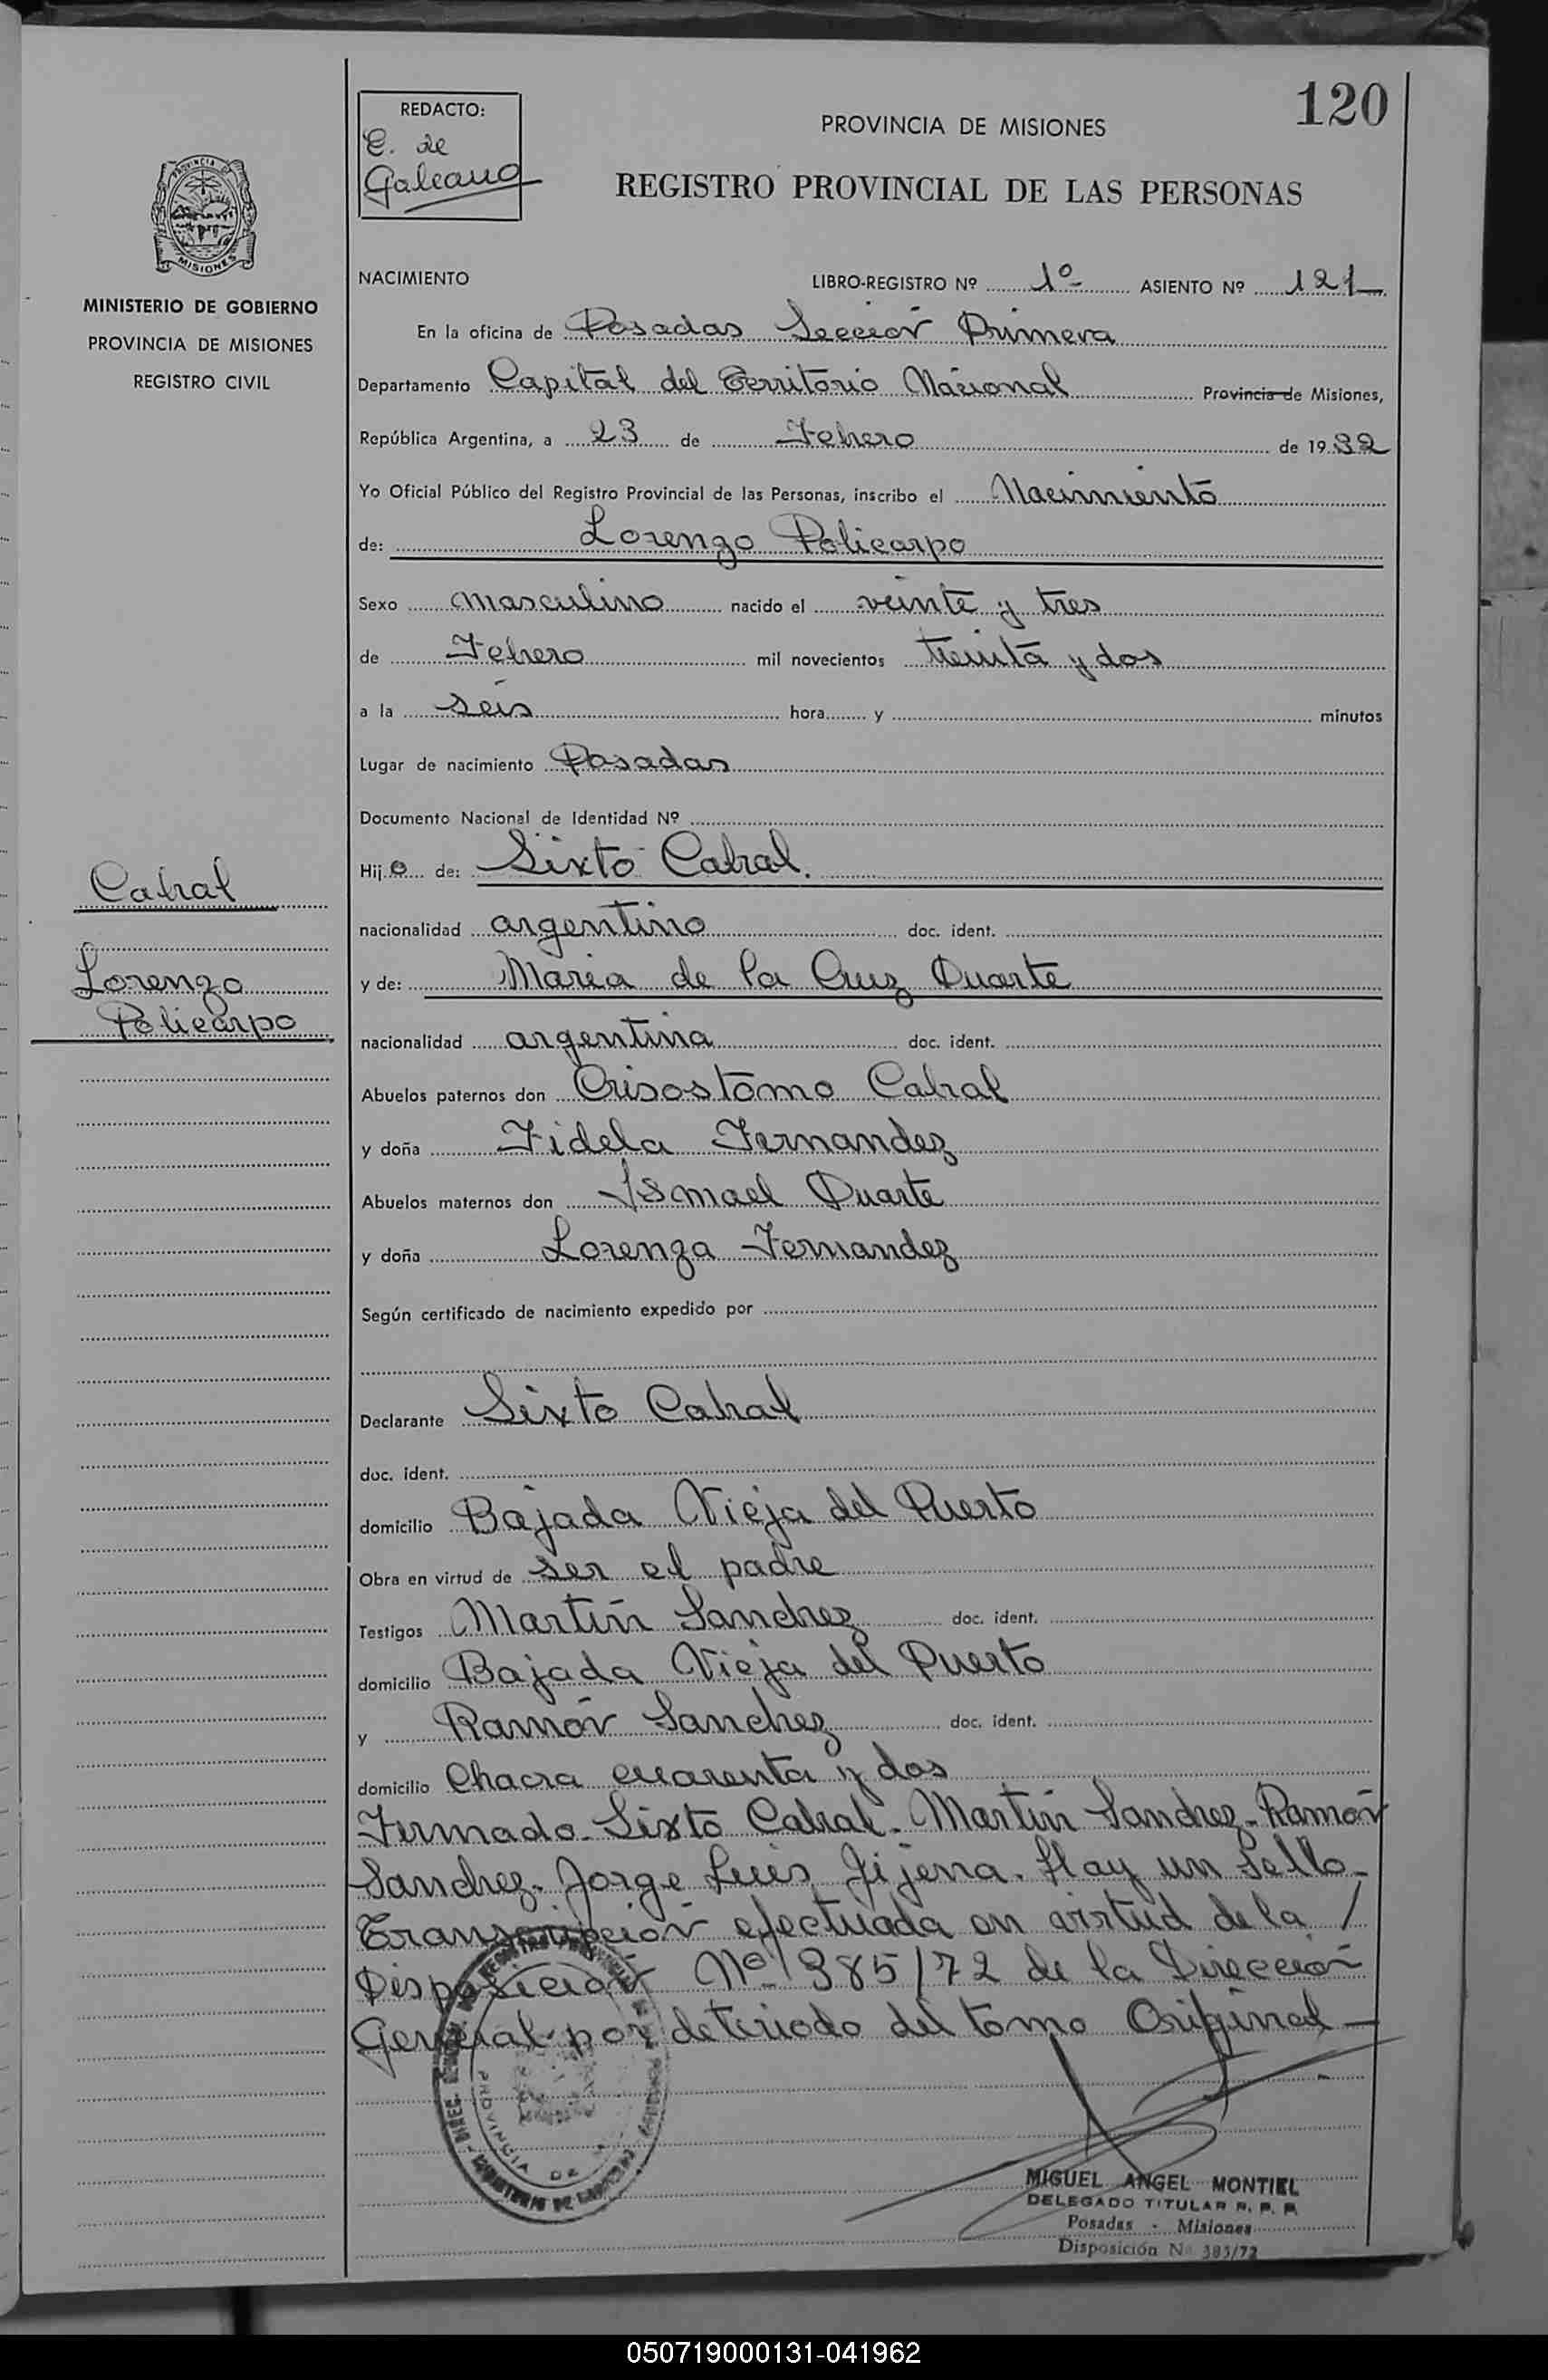 120
REDACTO:
E. de
Galeano
PROVINCIA DE MISIONES
REGISTRO PROVINCIAL DE LAS PERSONAS
MISIONES
MINISTERIO DE GOBIERNO
PROVINCIA DE MISIONES
REGISTRO CIVIL
NACIMIENTO LIBRO-REGISTRO Nº 1º ASIENTO Nº 121
En la oficina de Posadas Sección Primera
Departamento Capital del Territorio Nacional Provincia de Misiones,
República Argentina, a 23 de Febrero de 1932
Yo Oficial Público del Registro Provincial de las Personas, inscribo el Nacimiento
de: Lorenzo Policarpo
Sexo masculino nacido el veinte y tres
de Febrero mil novecientos treinta y dos
a la seis hora y minutos
Lugar de nacimiento Posadas
Documento Nacional de Identidad Nº
Hijo de: Sixto Cabral.
Cabral
nacionalidad argentino doc. ident.
Lorenzo
Policarpo
y de: Maria de la Cruz Duarte
nacionalidad argentina doc. ident.
Abuelos paternos don Crisostomo Cabral
y doña Fidela Fernandez
Abuelos maternos don Ismael Duarte
y doña Lorenza Fernandez
Según certificado de nacimiento expedido por
Declarante Sixto Cabral
doc. ident.
domicilio Bajada Vieja del Puerto
Obra en virtud de ser el padre
Testigos Martín Sanchez doc. ident.
domicilio Bajada Vieja del Puerto
y Ramón Sanchez doc. ident.
domicilio Chacra cuarenta y dos
Firmado. Sixto Cabral. Martín Sanchez. Ramón
Sanchez. Jorge Luis Jijena. Hay un Sello.
Transcripción efectuada en virtud de la /
Disposición Nº 385/72 de la Dirección
General por deteriodo del tomo Original
PROVINCIA DE
MIGUEL ANGEL MONTIEL
DELEGADO TITULAR R. P. P.
Posadas - Misiones
Disposición Nº 385/72
050719000131-041962